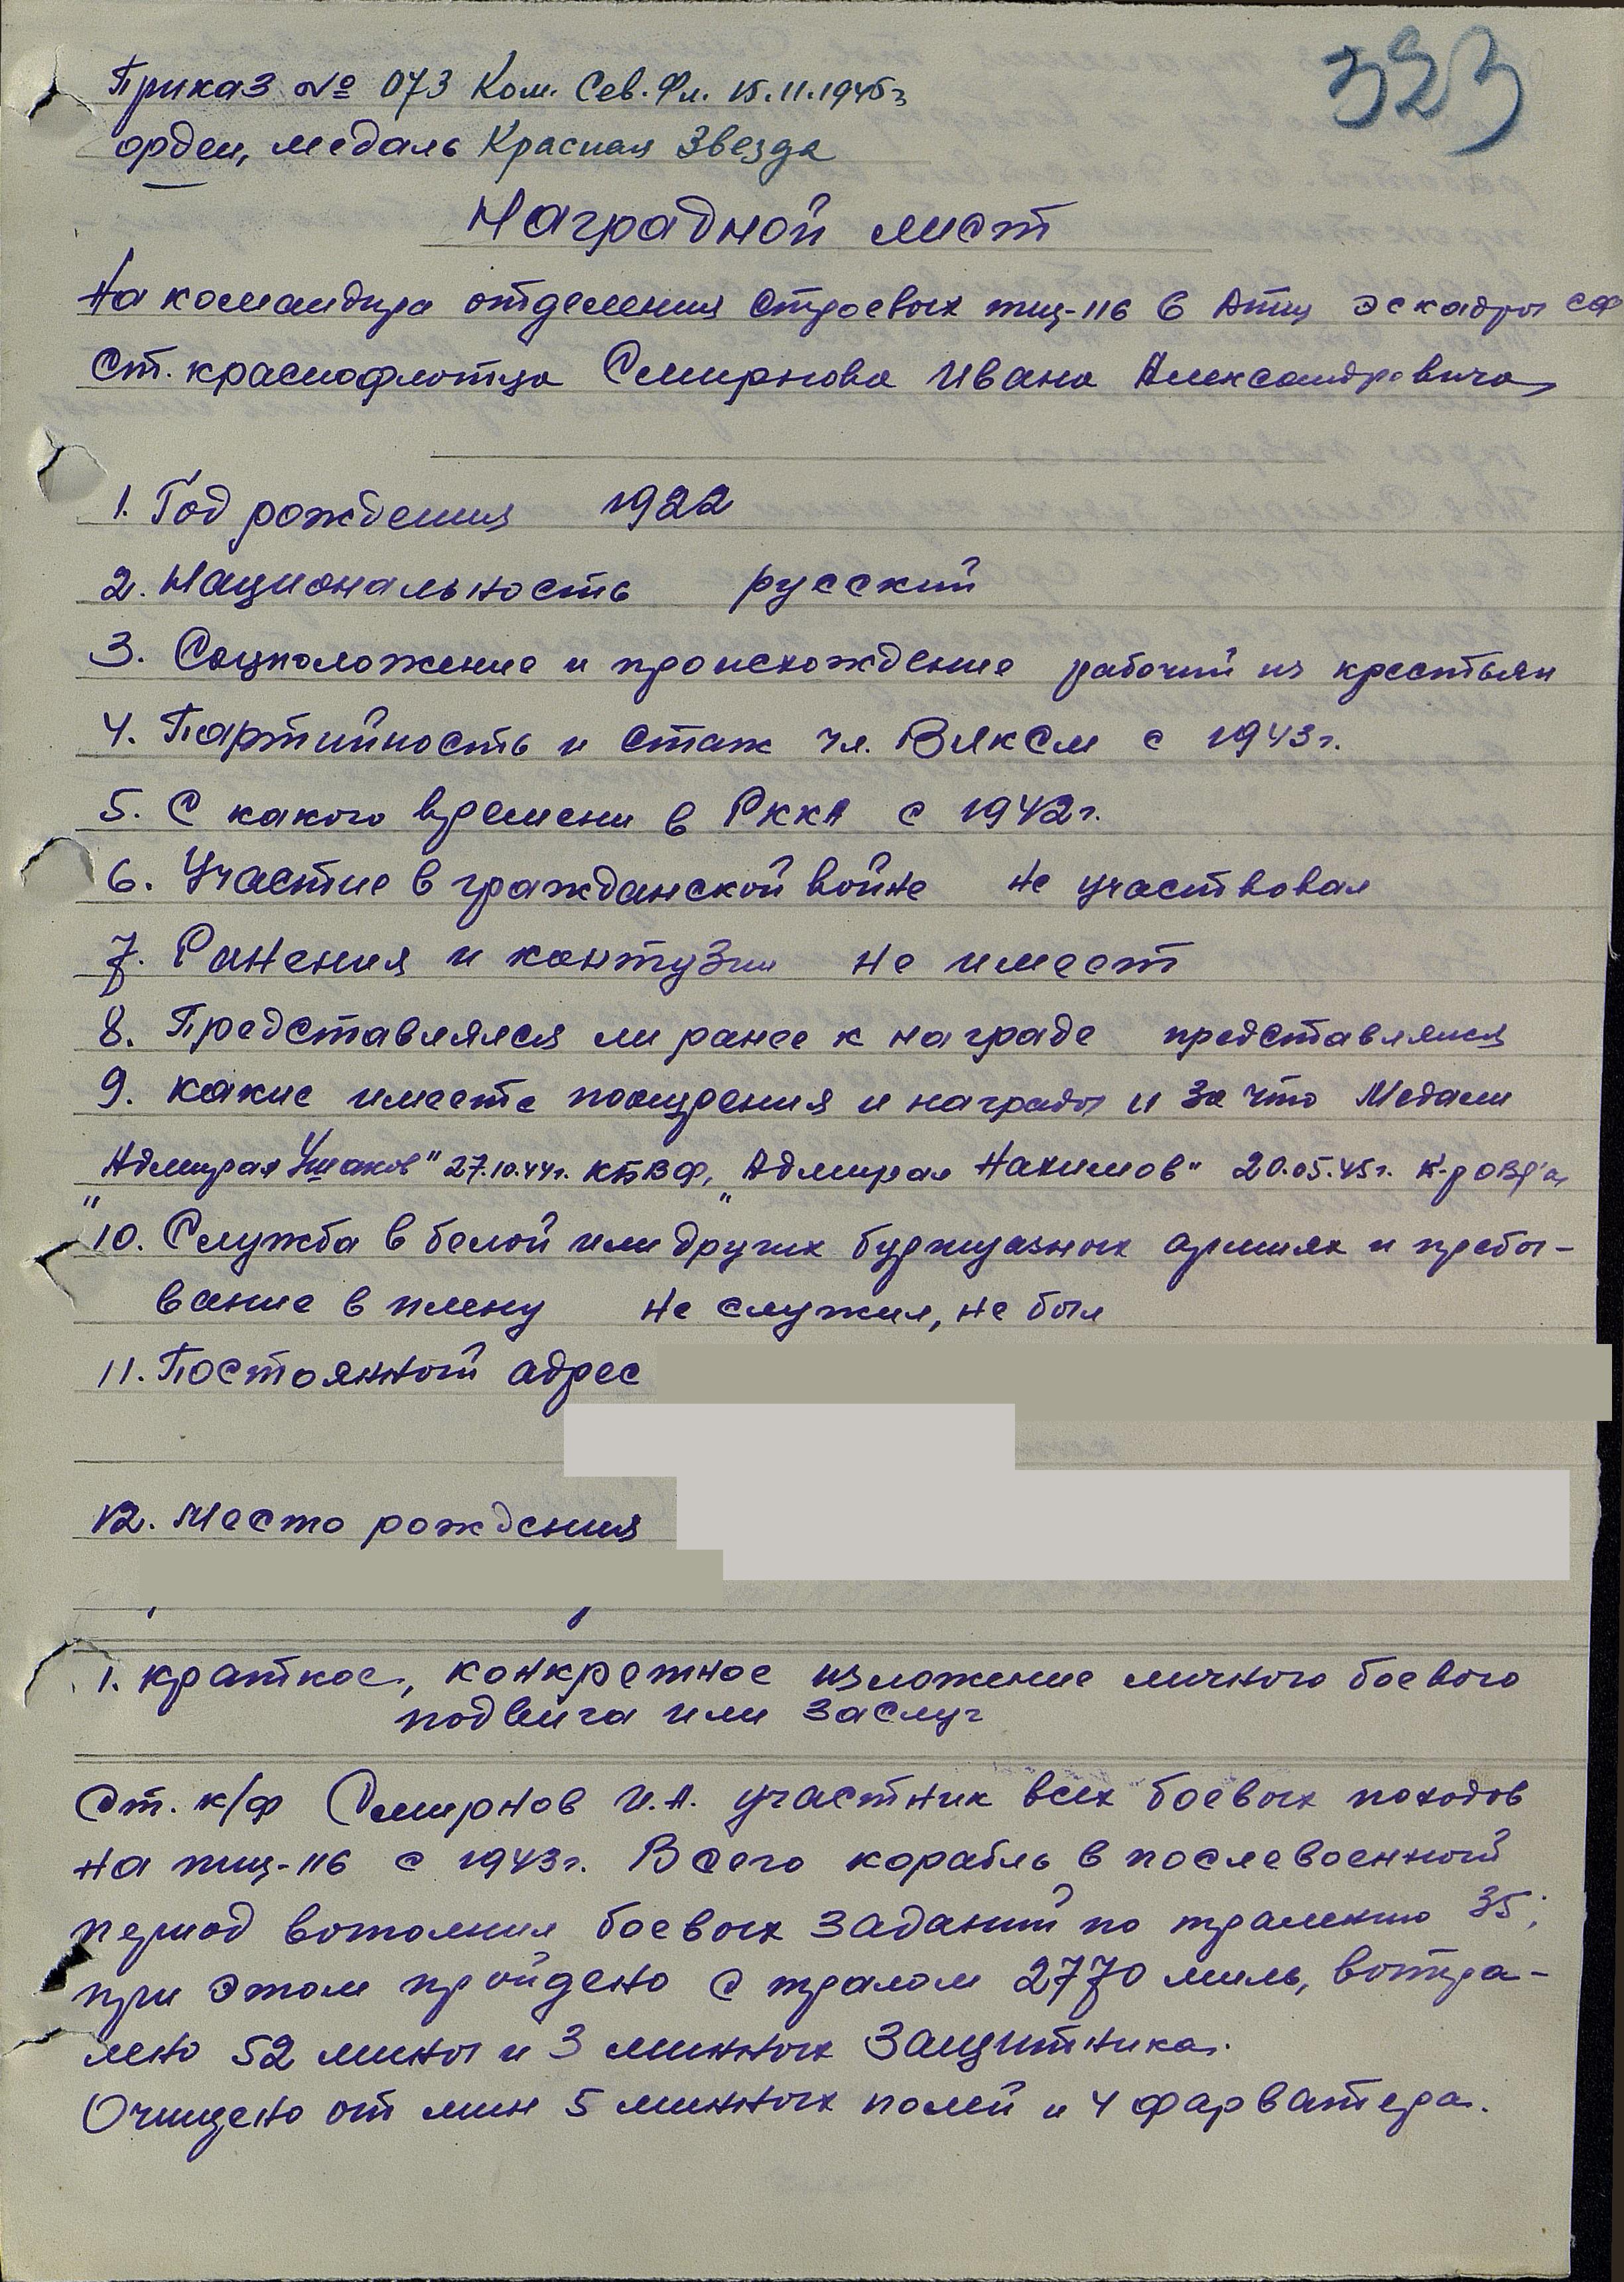 323
Приказ № 073 Ком. Сев. Фл. 15.11.1945г
орден, медаль Красная Звезда
Наградной лист
На командира отделения строевых тщ-116 6 Дтщ эскадры СФ
Ст. краснофлотца Смирнова Ивана Александровича
1. Год рождения 1922
2. Национальность русский
3. Соцположение и происхождение рабочий из крестьян
4. Партийность и стаж чл. ВЛКСМ с 1943г.
5. С какого времени в РККА с 1942г.
6. Участие в гражданской войне не участвовал
7. Ранения и контузии не имеет
8. Представлялся ли ранее к награде представлялся
9. Какие имеете поощрения и награды и за что Медали
"Адмирал Ушаков" 27.10.44г. КБВФ, "Адмирал Нахимов" 20.05.45г. К-р ОВР'а
10. Служба в белой или других буржуазных армиях и пребы-
вание в плену не служил, не был
11. Постоянный адрес
12. Место рождения
1. Краткое, конкретное изложение личного боевого
подвига или заслуг
Ст. к/ф Смирнов И.А. участник всех боевых походов
на тщ-116 с 1943г. Всего корабль в послевоенный
период выполнил боевых заданий по тралению 35;
при этом пройдено с тралом 2770 миль, вытра-
лено 52 мины и 3 минных защитника.
Очищено от мин 5 минных полей и 4 фарватера.